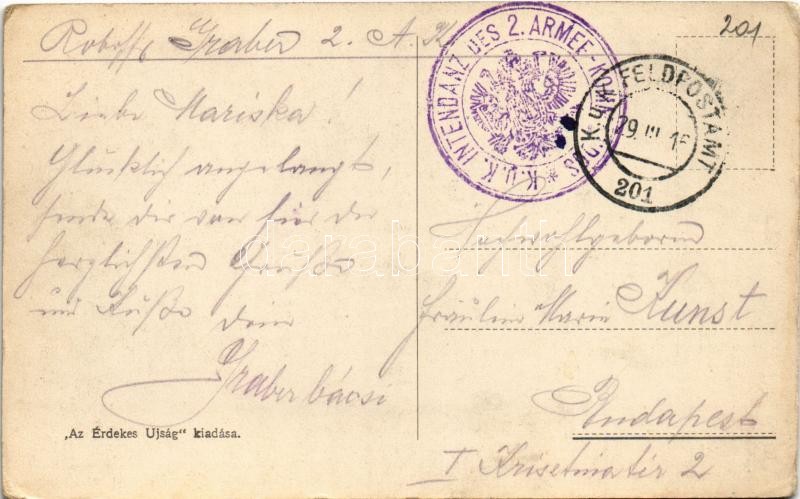 Graber 2. A. K.
201
K.U.K. INTENDANZ DES 2. ARMEE-KOM
K.u.K. FELDPOSTAMT
29. III. 16
201
Liebe Mariska!
Glücklich angelangt,
sende dir von hier die
herzlichsten Grüße
und Küße dein
Graber bácsi
Hochwohlgeboren
Fräulein Marie Kunst
Budapest
I Krisztina tér 2
„Az Érdekes Ujság" kiadása.
darabanth